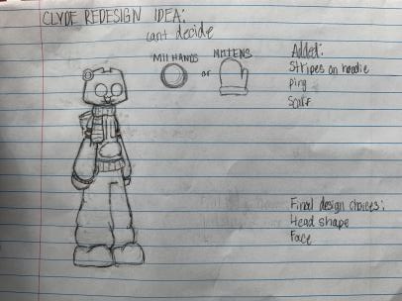 CLYDE REDESIGN IDEA:
cant decide
MII HANDS or MITTENS
Added:
Stripes on hoodie
Ping
Scarf
Final design choices:
Head shape
Face